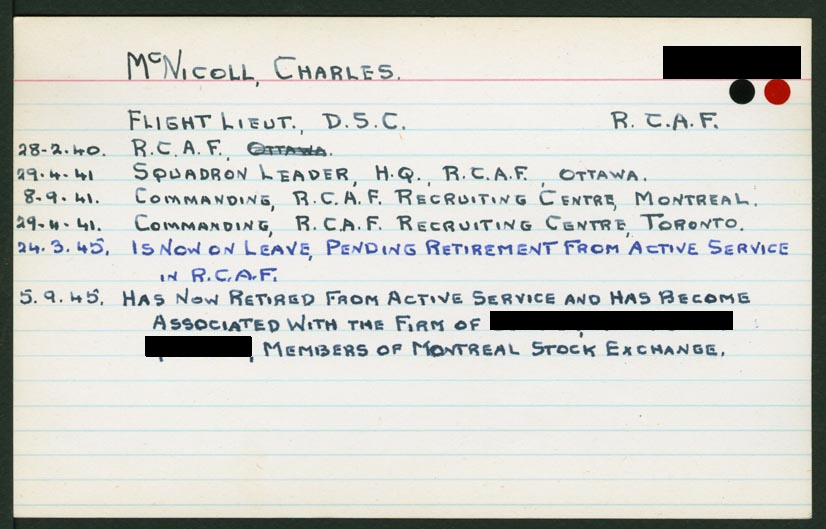 McNICOLL, CHARLES.
FLIGHT LIEUT., D.S.C. R.C.A.F.
28-2.40. R.C.A.F., OTTAWA.
29.4.41 SQUADRON LEADER, H.Q., R.C.A.F., OTTAWA.
8-9.41. COMMANDING, R.C.A.F. RECRUITING CENTRE, MONTREAL.
29-4.41. COMMANDING, R.C.A.F. RECRUITING CENTRE, TORONTO.
24.3.45. IS NOW ON LEAVE, PENDING RETIREMENT FROM ACTIVE SERVICE
IN R.C.A.F.
5.9.45. HAS NOW RETIRED FROM ACTIVE SERVICE AND HAS BECOME
ASSOCIATED WITH THE FIRM OF
, MEMBERS OF MONTREAL STOCK EXCHANGE.